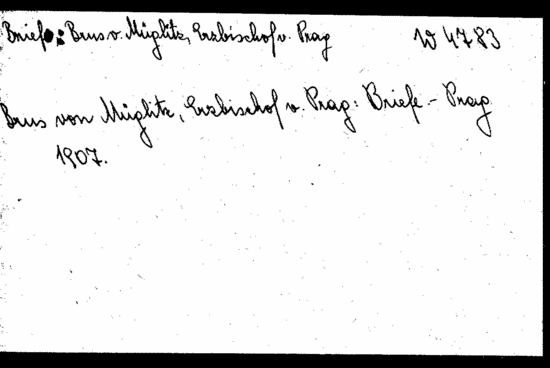 Briefe: Brus v. Müglitz, Erzbischof v. Prag W 4783
Brus von Müglitz, Erzbischof v. Prag: Briefe.- Prag
1907.